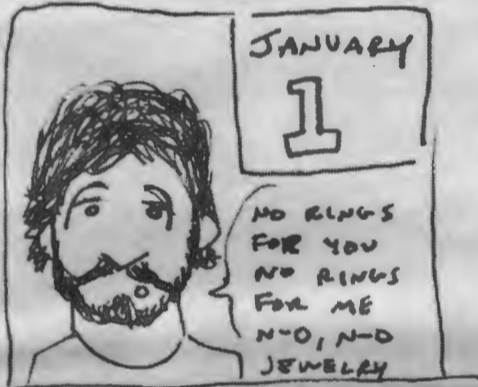 JANUARY
1
NO RINGS
FOR YOU
NO RINGS
FOR ME
N-O, N-O
JEWELRY